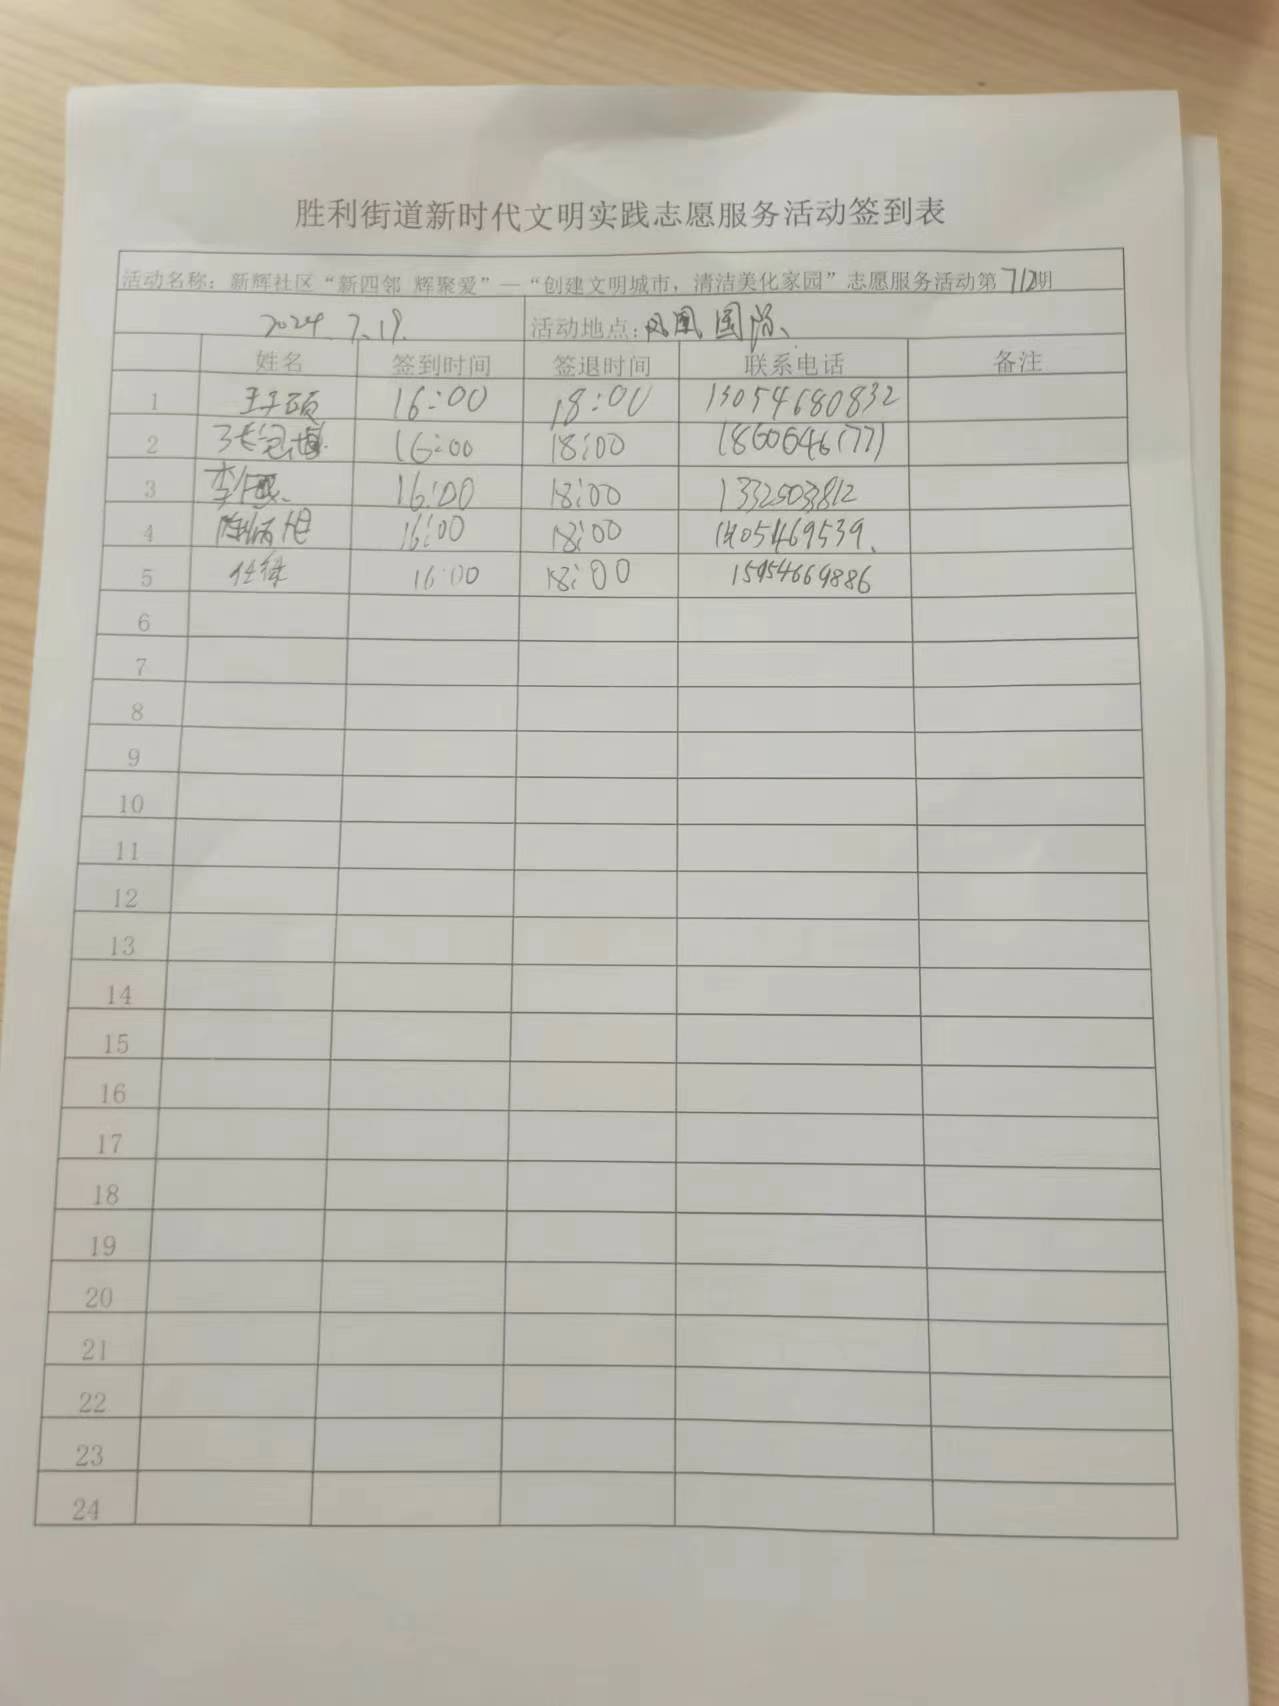 胜利街道新时代文明实践志愿服务活动签到表
活动名称：新辉社区“新四邻 辉聚爱”—“创建文明城市，清洁美化家园”志愿服务活动第712期
2024.7.19. 活动地点：凤凰国际、
姓名 签到时间 签退时间 联系电话 备注
1 王子硕 16:00 18:00 13054680832
2 张冠海 16:00 18:00 18606461771
3 李 16:00 18:00 1332503812
4 陈炳旭 16:00 18:00 1405469539、
5 任绿 16:00 18:00 15954669886
6
7
8
9
10
11
12
13
14
15
16
17
18
19
20
21
22
23
24